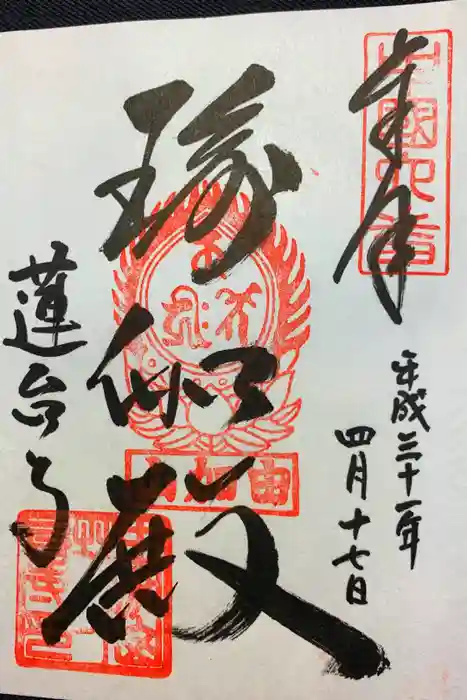 中國六番
奉拝
平成三十一年
四月十七日
瑜伽殿
由加山
蓮台寺